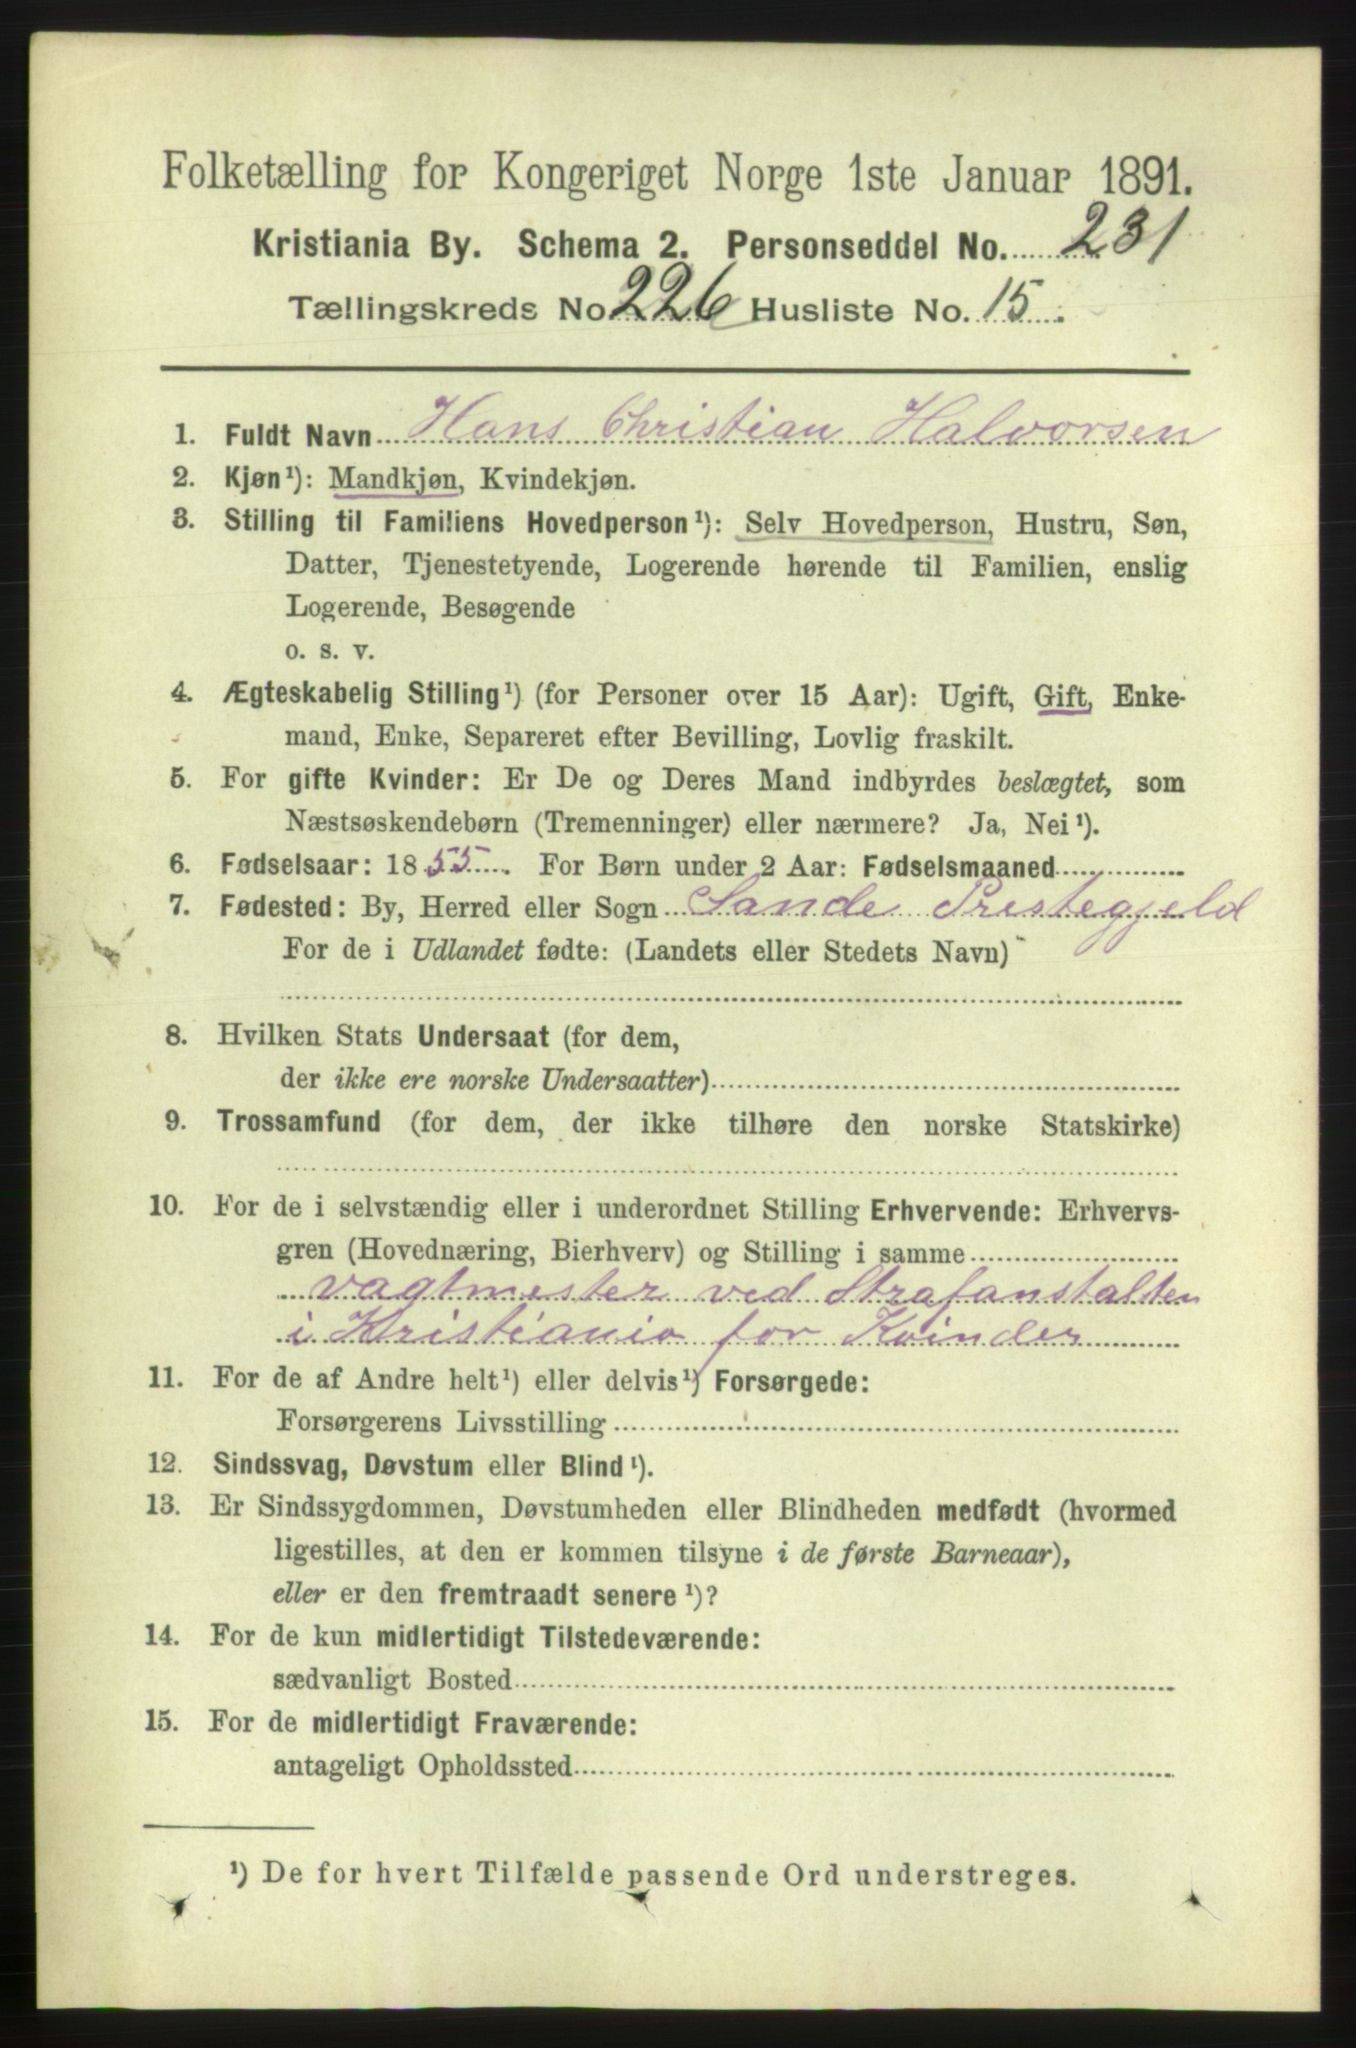 Folketælling for Kongeriget Norge 1ste Januar 1891.
Kristiania By. Schema 2. Personseddel No. 231
Tællingskreds No. 226 Husliste No. 15.
1. Fuldt Navn Hans Christian Halvorsen
2. Kjøn¹): Mandkjøn, Kvindekjøn.
3. Stilling til Familiens Hovedperson¹): Selv Hovedperson, Hustru, Søn,
Datter, Tjenestetyende, Logerende hørende til Familien, enslig
Logerende, Besøgende
o. s. v.
4. Ægteskabelig Stilling¹) (for Personer over 15 Aar): Ugift, Gift, Enke-
mand, Enke, Separeret efter Bevilling, Lovlig fraskilt.
5. For gifte Kvinder: Er De og Deres Mand indbyrdes beslægtet, som
Næstsøskendebørn (Tremenninger) eller nærmere? Ja, Nei¹).
6. Fødselsaar: 1855. For Børn under 2 Aar: Fødselsmaaned
7. Fødested: By, Herred eller Sogn Sande Prestegjeld
For de i Udlandet fødte: (Landets eller Stedets Navn)
8. Hvilken Stats Undersaat (for dem,
der ikke ere norske Undersaatter)
9. Trossamfund (for dem, der ikke tilhøre den norske Statskirke)
10. For de i selvstændig eller i underordnet Stilling Erhvervende: Erhvervs-
gren (Hovednæring, Bierhverv) og Stilling i samme
vagtmester ved Strafanstalten
i Kristiania for Kvinder
11. For de af Andre helt¹) eller delvis¹) Forsørgede:
Forsørgerens Livsstilling
12. Sindssvag, Døvstum eller Blind¹).
13. Er Sindssygdommen, Døvstumheden eller Blindheden medfødt (hvormed
ligestilles, at den er kommen tilsyne i de første Barneaar),
eller er den fremtraadt senere¹)?
14. For de kun midlertidigt Tilstedeværende:
sædvanligt Bosted
15. For de midlertidigt Fraværende:
antageligt Opholdssted
¹) De for hvert Tilfælde passende Ord understreges.